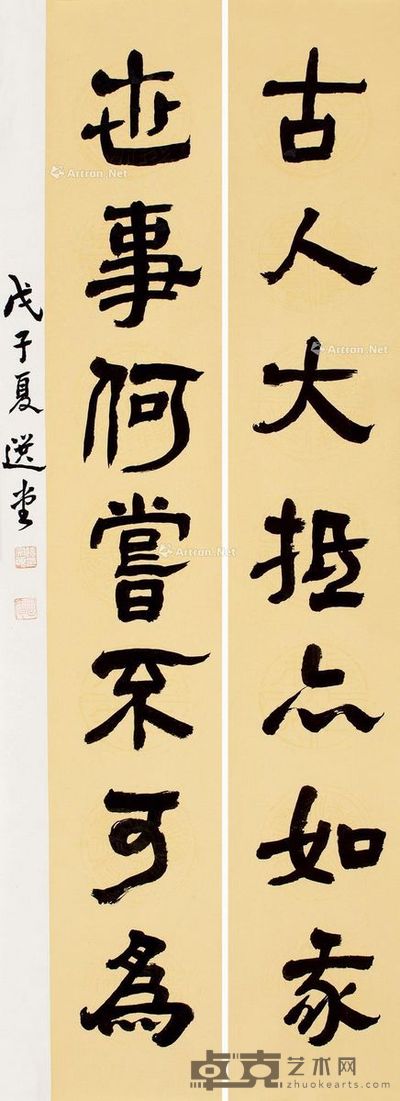 古人大抵亦如我
世事何嘗不可為
戊子夏 選堂
Artron.Net
Artron.Net
Artron.Net
卓克艺术网
zhuokearts.com